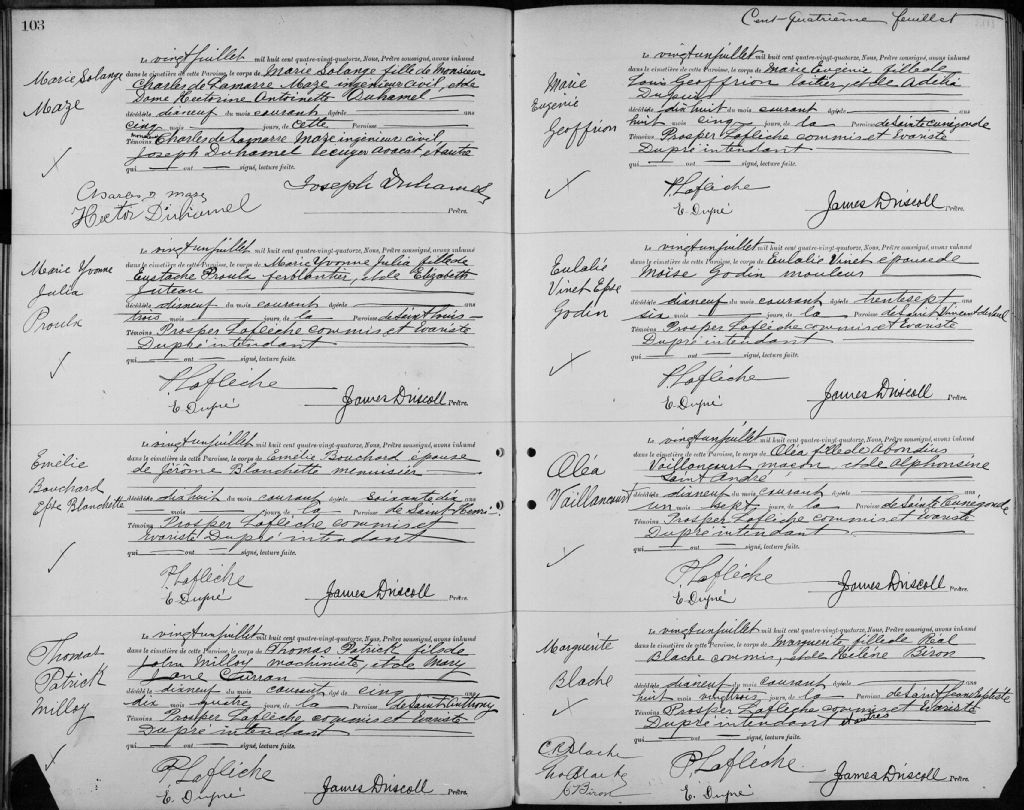 103
Marie Solange
Maze
Le vingt juillet mil huit cent quatre-vingt-quatorze, Nous, Prêtre soussigné, avons inhumé
dans le cimetière de cette Paroisse, le corps de Marie Solange fille de Monsieur
Charles de Lamarre Maze ingénieur civil, et de
Dame Hectorine Antoinette Duhamel
décédée le dixneuf du mois courant âgée de ans
cinq mois jours, de cette Paroisse
Témoins Charles de Lamarre Maze ingénieur civil
Joseph Duhamel écuyer avocat, et autre
qui ont signé, lecture faite.
Joseph Duhamel
Hector Duhamel
Prêtre.
Marie Yvonne
Julia
Proulx
Le vingt un juillet mil huit cent quatre-vingt-quatorze, Nous, Prêtre soussigné, avons inhumé
dans le cimetière de cette Paroisse, le corps de Marie Yvonne Julia fille de
Eustache Proulx ferblantier, et de Elizabeth
Juteau
décédée le dixneuf du mois courant âgée de ans
trois mois jours, de la Paroisse de Saint Louis
Témoins Prosper Laflèche commis et Evariste
Dupré intendant
qui ont signé, lecture faite.
P Laflèche
E. Dupré
James Driscoll Prêtre.
Emélie
Bouchard
Epse Blanchette
Le vingt un juillet mil huit cent quatre-vingt-quatorze, Nous, Prêtre soussigné, avons inhumé
dans le cimetière de cette Paroisse, le corps de Emélie Bouchard épouse
de Jérôme Blanchette menuisier
décédée le dix huit du mois courant âgée de soixante dix ans
mois jours, de la Paroisse de Saint Henri
Témoins Prosper Laflèche commis et
Evariste Dupré intendant
qui ont signé, lecture faite.
P Laflèche
E. Dupré
James Driscoll Prêtre.
Thomas
Patrick
Milloy
Le vingt un juillet mil huit cent quatre-vingt-quatorze, Nous, Prêtre soussigné, avons inhumé
dans le cimetière de cette Paroisse, le corps de Thomas Patrick fils de
John Milloy machiniste, et de Mary
Jane Curran
décédé le dixneuf du mois courant âgé de cinq ans
dix mois quatre jours, de la Paroisse de Saint Anthony
Témoins Prosper Laflèche commis et Evariste
Dupré intendant
qui ont signé, lecture faite.
P. Laflèche
E. Dupré
James Driscoll Prêtre.
Cent-quatrième feuillet
Marie
Eugénie
Geoffrion
Le vingt un juillet mil huit cent quatre-vingt-quatorze, Nous, Prêtre soussigné, avons inhumé
dans le cimetière de cette Paroisse, le corps de Marie Eugénie fille de
Louis Geoffrion laitier, et de
décédée le dix huit du mois courant âgée de ans
huit mois cinq jours, de la Paroisse de Sainte Cunégonde
Témoins Prosper Laflèche commis et Evariste
Dupré intendant
qui ont signé, lecture faite.
P. Laflèche
E. Dupré
James Driscoll Prêtre.
Eulalie
Vinet Epse
Godin
Le vingt un juillet mil huit cent quatre-vingt-quatorze, Nous, Prêtre soussigné, avons inhumé
dans le cimetière de cette Paroisse, le corps de Eulalie Vinet épouse de
Moïse Godin mouleur
décédée le dixneuf du mois courant âgée de trente sept ans
six mois jours, de la Paroisse de Saint Vincent de Paul
Témoins Prosper Laflèche commis et Evariste
Dupré intendant
qui ont signé, lecture faite.
P Laflèche
E. Dupré
James Driscoll Prêtre.
Oléa
Vaillancourt
Le vingt un juillet mil huit cent quatre-vingt-quatorze, Nous, Prêtre soussigné, avons inhumé
dans le cimetière de cette Paroisse, le corps de Oléa fille de Abondius
Vaillancourt maçon, et de Alphonsine
Saint André
décédée le dixneuf du mois courant âgée de ans
un mois sept jours, de la Paroisse de Sainte Cunégonde
Témoins Prosper Laflèche commis et Evariste
Dupré intendant
qui ont signé, lecture faite.
P Laflèche
E. Dupré
James Driscoll Prêtre.
Marguerite
Blache
Le vingt un juillet mil huit cent quatre-vingt-quatorze, Nous, Prêtre soussigné, avons inhumé
dans le cimetière de cette Paroisse, le corps de Marguerite fille de Réal
Blache commis, et de Hélène Biron
décédée le dixneuf du mois courant âgée de ans
huit mois vingt trois jours, de la Paroisse de Saint Jean Baptiste
Témoins Prosper Laflèche commis et Evariste
Dupré intendant et autres
qui ont signé, lecture faite.
P. Laflèche
E. Dupré
James Driscoll Prêtre.